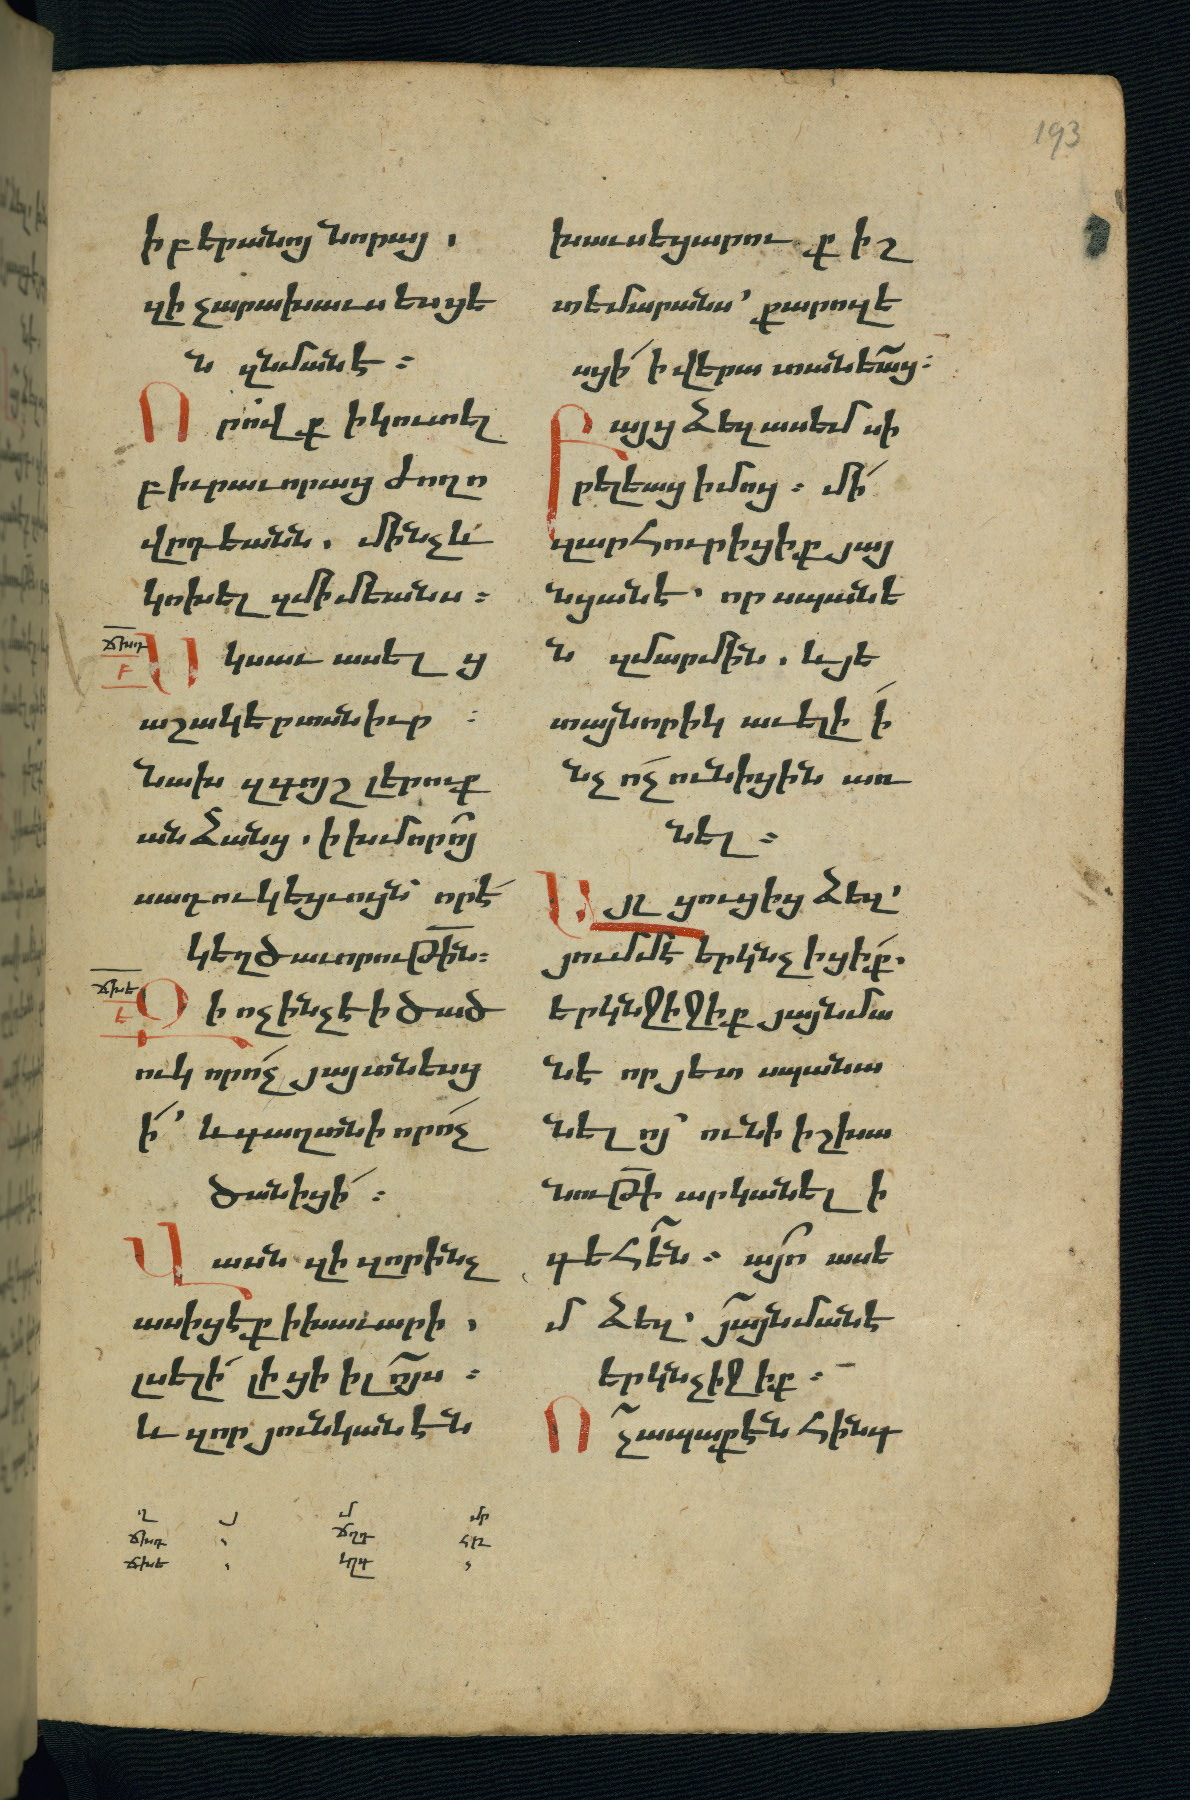 193
ի բերանոյ նորայ ,
զի չարախաւս եսցե
ն զնմանէ :
Որով ք ի կուտել
բիւրաւորաց ժողո
վրդեանն . մինչև
կոխել զմիմեանս :
ՃԽԴ
Բ
Սկսաւ ասել ց
աշակերտսն իւր :
նախ զգոյշ լերուք
անձանց , ի խմորոյ
սադուկեցւոյն որ է
կեղծաւորութին :
ՃԽԵ
Ե
Զի ոչինչ է ի ծած
ուկ որ ոչ յայտնեսց
ի՛ և գաղտնի որ ոչ
ծանիցի :
Վասն զի զոր ինչ
ասիցէք ի խաւարի ,
լսելի լիցի ի լոյս :
և զոր յունկանէն
խաւսեցարուք ի շ
տեմարանս՝ քարոզե
սցի ի վերա տանեաց :
Բայց ձեզ ասեմ սի
րելեաց իմոց : մի
զարհուրիցիք յայ
նցանէ՝ որ սպանե
ն զմարմին . և յե
տ այնորիկ աւելի ի
նչ ոչ ունիցին առ
նել :
Այլ ցուցից ձեզ՝
յումմէ երկնչիցիք .
երկնջիջիք յայնմա
նէ որ յետ սպանա
նել ոյ՝ ունի իշխա
նութի արկանել ի
գեհեն : այո ասե
մ ձեզ՝ յայնմանէ
երկնչիջիք :
Ոչ ապաքէն հինգ
Ղ Յ Մ ՄՐ
ՃԽԴ , ՃՂԴ ՀԶ
ՃԽԵ , ԿՂԳ ,